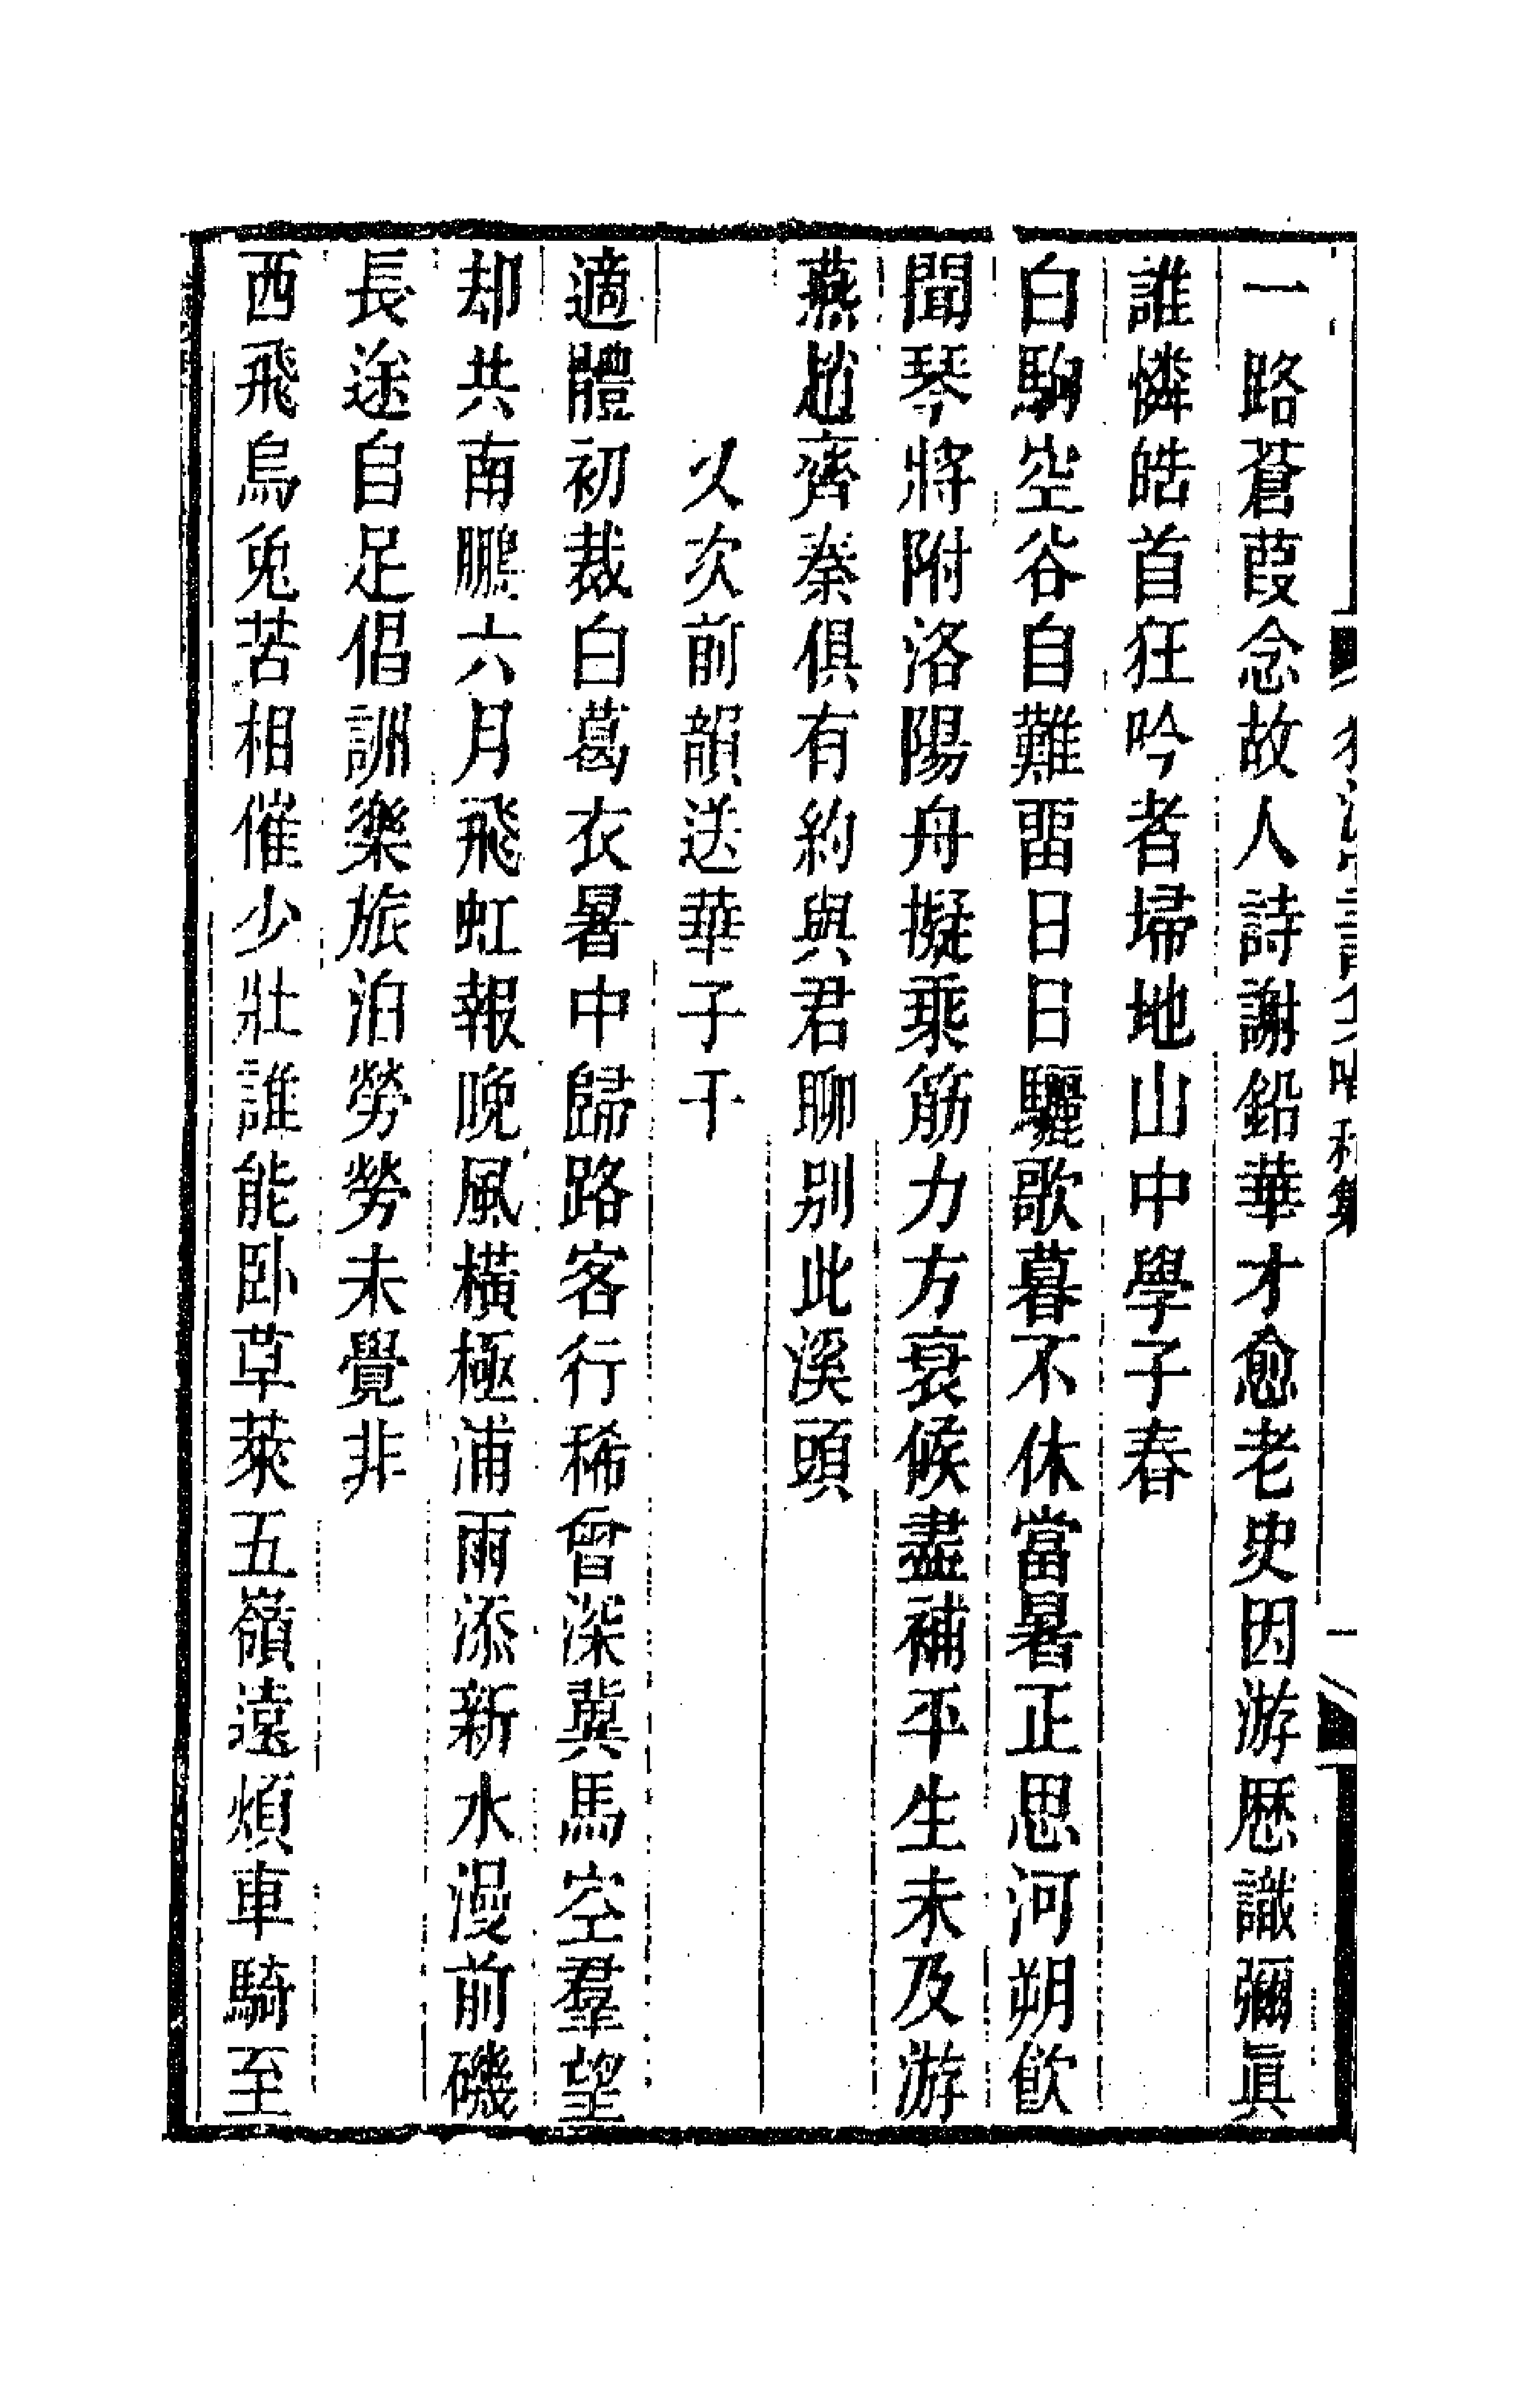 一路蒼葭念故人詩謝鉛華才愈老史因游歷識彌眞
誰憐皓首狂吟者埽地山中學子春
白駒空谷自難畱日日驪歌暮不休當暑正思河朔飮
聞琴將附洛陽舟擬乘筋力方衰候盡補平生未及游
燕趙齊秦俱有約與君聊別此溪頭
乆次前韻送華子干
適體初裁白葛衣暑中歸路客行稀曾深冀馬空羣望
却共南鵬六月飛虹報晚風橫極浦雨添新水漫前磯
長途自足倡詶樂旅泊勞勞未覺非
西飛烏兔苦相催少壯誰能臥草萊五嶺遠煩車騎至